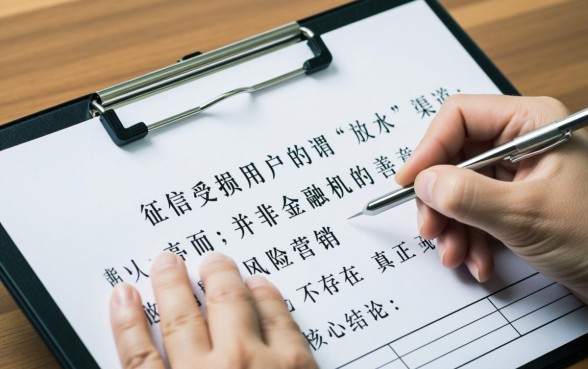 征信受损用户的谓“放水”渠道：
人 而；并非金融机的善意
风险营销
不存在 真正或
核心结论：